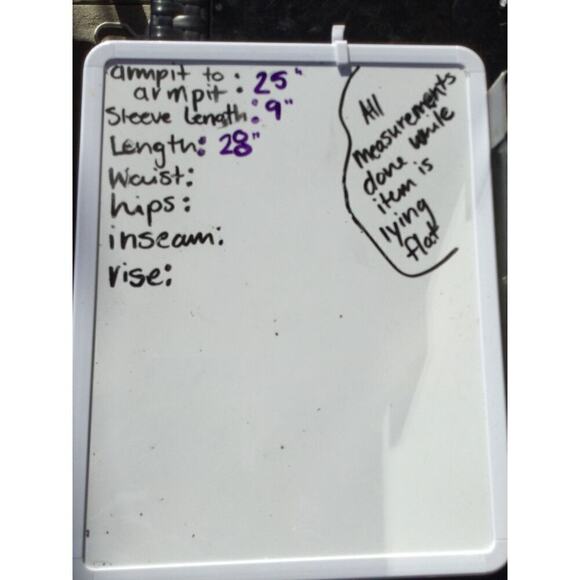 armpit to
armpit : 25"
Sleeve Length: 9"
Length: 28"
Waist:
hips:
inseam:
rise:
All
measurements
done while
item is
lying
flat